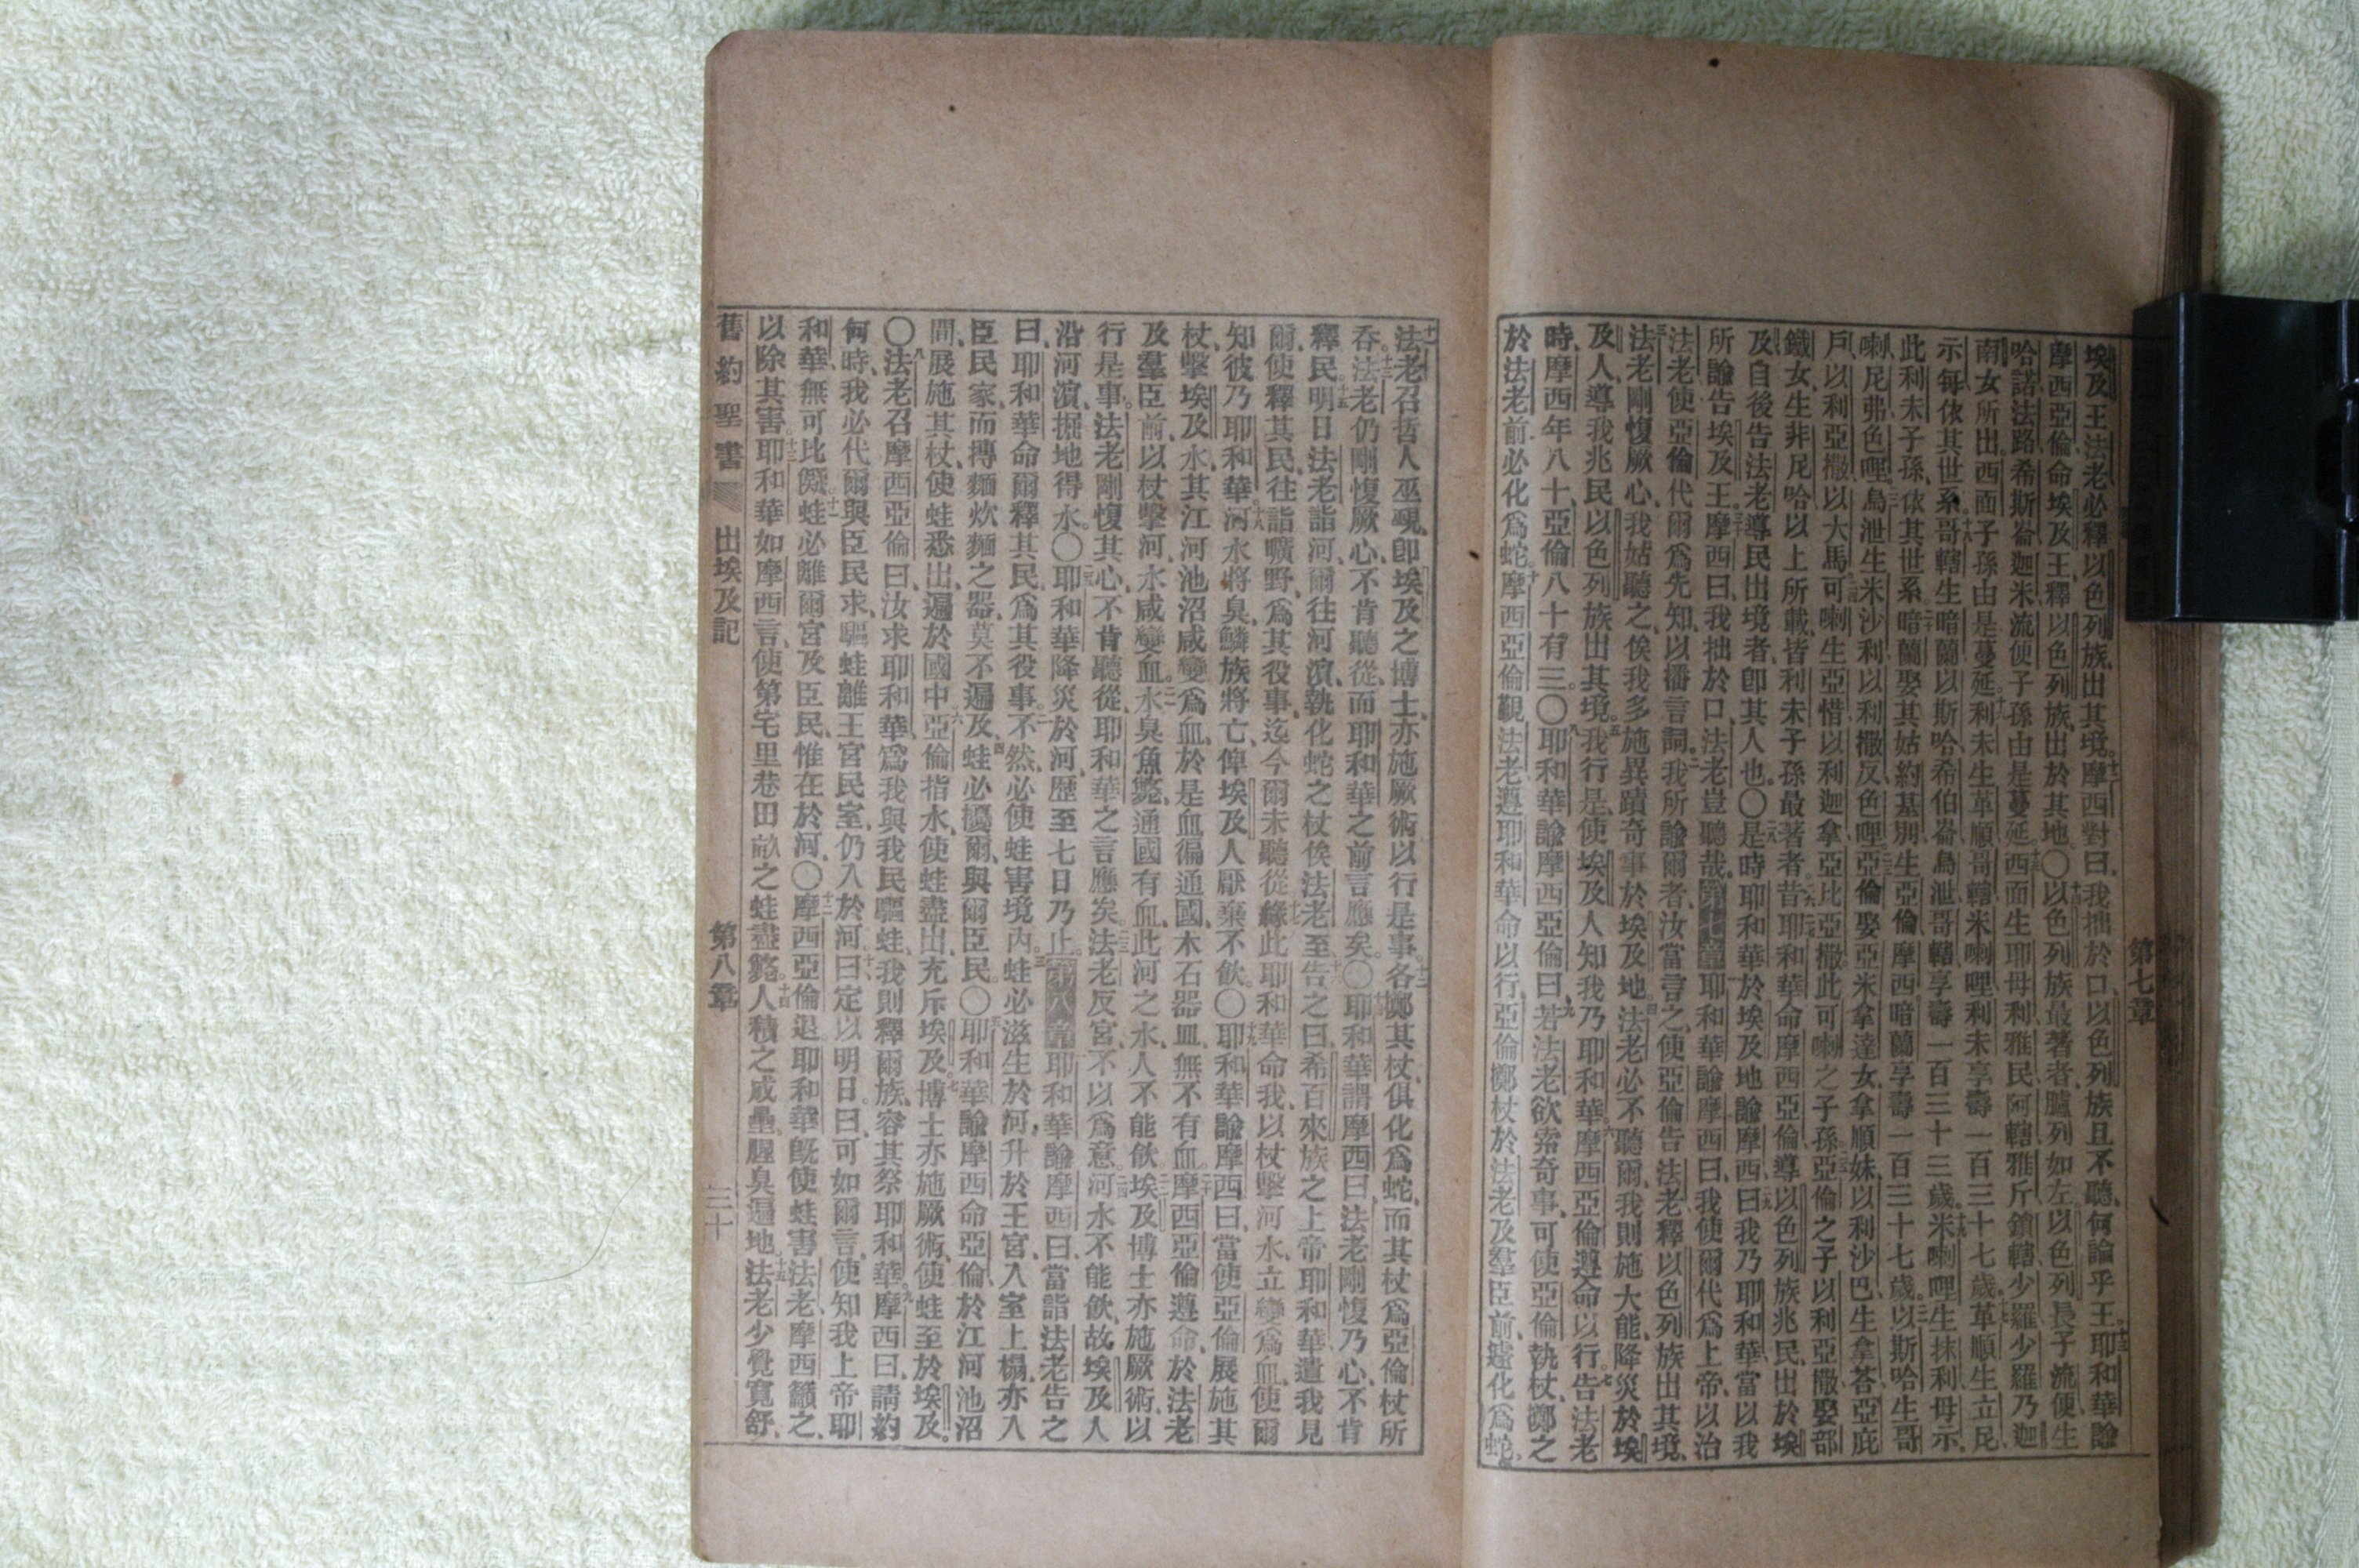 第七章
埃及王法老必釋以色列族、出其境。摩西對曰、我拙於口、以色列族且不聽、何論乎王、耶和華諭
摩西亞倫、命埃及王、釋以色列族、出於其地。〇以色列族最著者、臚列如左、以色列長子流便生
哈諾、法路、希斯崙、迦米、流便子孫由是蔓延。西面生耶母利、雅民、阿轄、雅斤、鎖轄、少羅、少羅乃迦
南女所出、西面子孫由是蔓延。利未生革順、哥轄、米喇哩、利未享壽一百三十七歲。革順生立尼、
示每、依其世系。哥轄生暗蘭、以斯哈、希伯崙、烏泄、哥轄享壽一百三十三歲。米喇哩生抹利、母示、
此利未子孫、依其世系。暗蘭娶其姑約基別、生亞倫、摩西、暗蘭享壽一百三十七歲。以斯哈生哥
喇、尼弗、色哩、烏泄生米沙利、以利撒反、色哩、亞倫娶亞米拿達女、拿順妹、以利沙巴、生拿答、亞庇
戶、以利亞撒、以大馬、可喇生亞惜、以利迦拿、亞比亞撒、此可喇之子孫。亞倫之子以利亞撒、娶部
鐵女、生非尼哈、以上所載、皆利未子孫最著者。昔耶和華命摩西亞倫、導以色列族兆民、出於埃
及、自後告法老、導民出境者、即其人也。〇是時耶和華於埃及地諭摩西曰、我乃耶和華、當以我
所諭、告埃及王、摩西曰、我拙於口、法老豈聽哉。第七章耶和華諭摩西曰、我使爾代爲上帝、以治
法老、使亞倫代爾爲先知、以播言詞。我所諭爾者、汝當言之、使亞倫告法老、釋以色列族出其境、
法老剛愎厥心、我姑聽之、俟我多施異蹟奇事於埃及地、法老必不聽爾、我則施大能、降災於埃
及人、導我兆民、以色列族出其境。我行是、使埃及人知我乃耶和華。摩西亞倫遵命以行。告法老
時、摩西年八十、亞倫八十有三。〇耶和華諭摩西亞倫曰、若法老欲索奇事、可使亞倫執杖、擲之
於法老前、必化爲蛇。摩西亞倫覲法老、遵耶和華命以行、亞倫擲杖於法老及羣臣前、遂化爲蛇。
法老召哲人巫覡、卽埃及之博士、亦施厥術以行是事。各擲其杖、俱化爲蛇、而其杖爲亞倫杖所
吞。法老仍剛愎厥心、不肯聽從、而耶和華之前言應矣。〇耶和華謂摩西曰、法老剛愎乃心、不肯
釋民。明日法老詣河、爾往河濱、執化蛇之杖、俟法老至。告之曰、希百來族之上帝耶和華遣我見
爾、使釋其民、往詣曠野、爲其役事、迄今爾未聽從、緣此耶和華命我、以杖擊河水、立變爲血、使爾
知彼乃耶和華。河水將臭、鱗族將亡、俾埃及人厭棄不飲。〇耶和華諭摩西曰、當使亞倫展施其
杖、擊埃及水、其江河池沼咸變爲血、於是血徧通國、木石器皿、無不有血。摩西亞倫遵命、於法老
及羣臣前、以杖擊河、水咸變血。水臭魚斃、通國有血、此河之水、人不能飲、埃及博士亦施厥術、以
行是事。法老剛愎其心、不肯聽從、耶和華之言應矣。法老反宮、不以爲意。河水不能飲、故埃及人
沿河濱、掘地得水。〇耶和華降災於河、歷至七日乃止。第八章耶和華諭摩西曰、當詣法老告之
曰、耶和華命爾釋其民、爲其役事。不然、必使蛙害境內。蛙必滋生於河、升於王宮、入室上榻、亦入
臣民家、而摶麵炊麵之器、莫不遍及。蛙必擾爾、與爾臣民。〇耶和華諭摩西、命亞倫於江河池沼
間、展施其杖、使蛙悉出、遍於國中。亞倫指水、使蛙盡出、充斥埃及。博士亦施厥術、使蛙至於埃及。
〇法老召摩西亞倫曰、汝求耶和華、爲我與我民驅蛙、我則釋爾族、容其祭耶和華。摩西曰、請約
何時、我必代爾、與臣民求、驅蛙離王宮民室、仍入於河。曰、定以明日。曰、可如爾言、使知我上帝耶
和華、無可比儗。蛙必離爾宮及臣民、惟在於河。〇摩西亞倫退。耶和華旣使蛙害法老、摩西籲之、
以除其害。耶和華如摩西言、使第宅里巷田畝之蛙盡斃。人積之成壘、腥臭遍地。法老少覺寬舒、
舊約聖書 出埃及記 第八章 三十